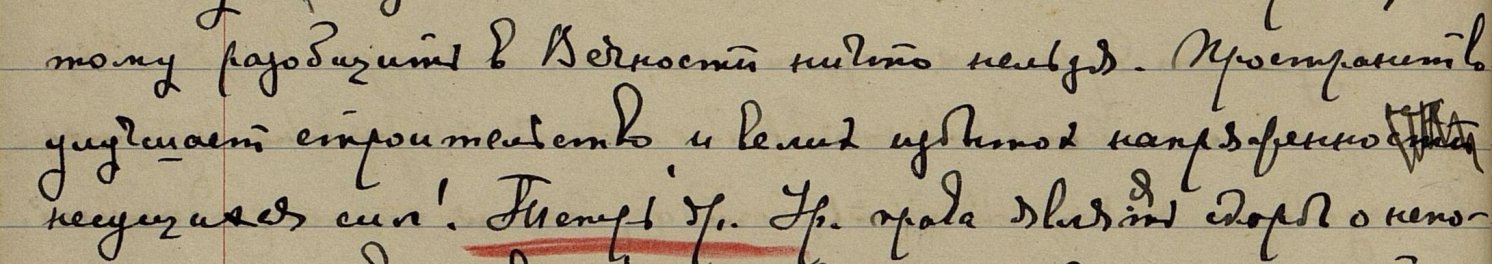 тому разобщить в Вечности ничто нельзя. Пространство
улучшает строительство и велик избыток напряженно
несущихся сил! Теперь Ур. права являть скорбь о непо-